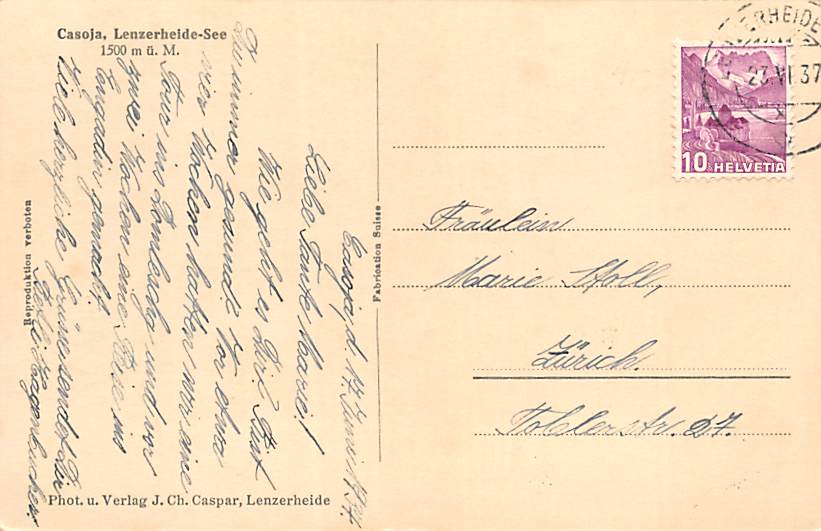 Casoja, Lenzerheide-See
1500 m ü. M.
Casoja, d. 17. Juni 1937.
Liebe Tante Marie!
Wie geht es Dir? Bist
Du immer gesund? Vor etwa
vier Wochen hatten wir eine
Tour ins Domleschg und vor
zwei Wochen eine Reise ins
Engadin gemacht.
Viele herzliche Grüsse sendet Dir
Hagenbucher.
Reproduktion verboten
Fabrication Suisse
Phot. u. Verlag J. Ch. Caspar, Lenzerheide
ERHEIDE
23.VI.37
10 HELVETIA
Fräulein
Marie Stoll,
Zürich.
Toblerstr. 27.